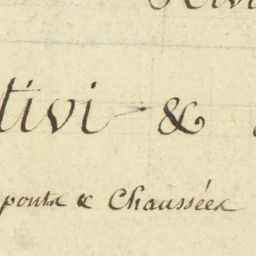 tivi &
ponts & Chaussées